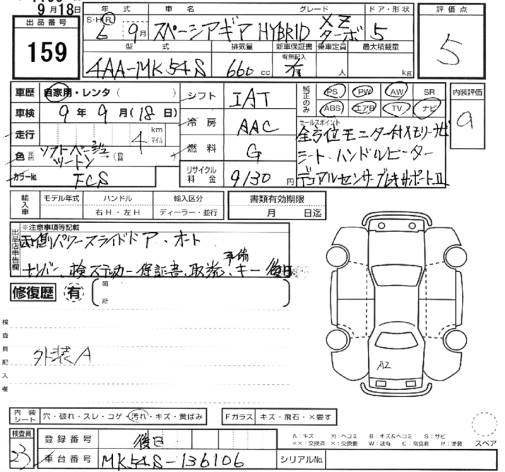 9月18日
出品番号
159
年式
車名
グレード
ドア・形状
評価点
S・H・R
6年 9月
スペーシアギア HYBRID XZターボ
5
5
型式
排気量
新車保証書
乗車定員
最大積載量
有無記入
4AA-MK54S
660 cc
有
人
kg
車歴 自家用・レンタ
シフト IAT
純正のみ
PS PW AW SR
ABS エアB TV ナビ
内装評価
車検 9年 9月(18日)
冷房 AAC
セールスポイント
走行 4 km マイル
燃料 G
全方位モニター付メモリーナビ
色 ソフトベージュツートン
シートヒーター・ハンドルヒーター
カラーNo FCS
リサイクル料金 9130円
デュアルセンサーブレーキサポートII
輸入車
モデル年式 ハンドル 輸入区分
年 右H・左H ディーラー・並行
書類有効期限
月 日迄
出品店申告欄
※注意事項等記載
両側パワースライドドア・オート
ナンバー、検ステッカー、保証書、取説、予備キー 後日
修復歴 有
箇所
検査員記入欄
外装A
A2
内装シート
穴・破れ・スレ・コゲ・汚れ・キズ・黄ばみ
Fガラス キズ・飛石・×要す
検査員
23
登録番号 後日
車台番号 MK54S-136106
シリアルNo.
スペア